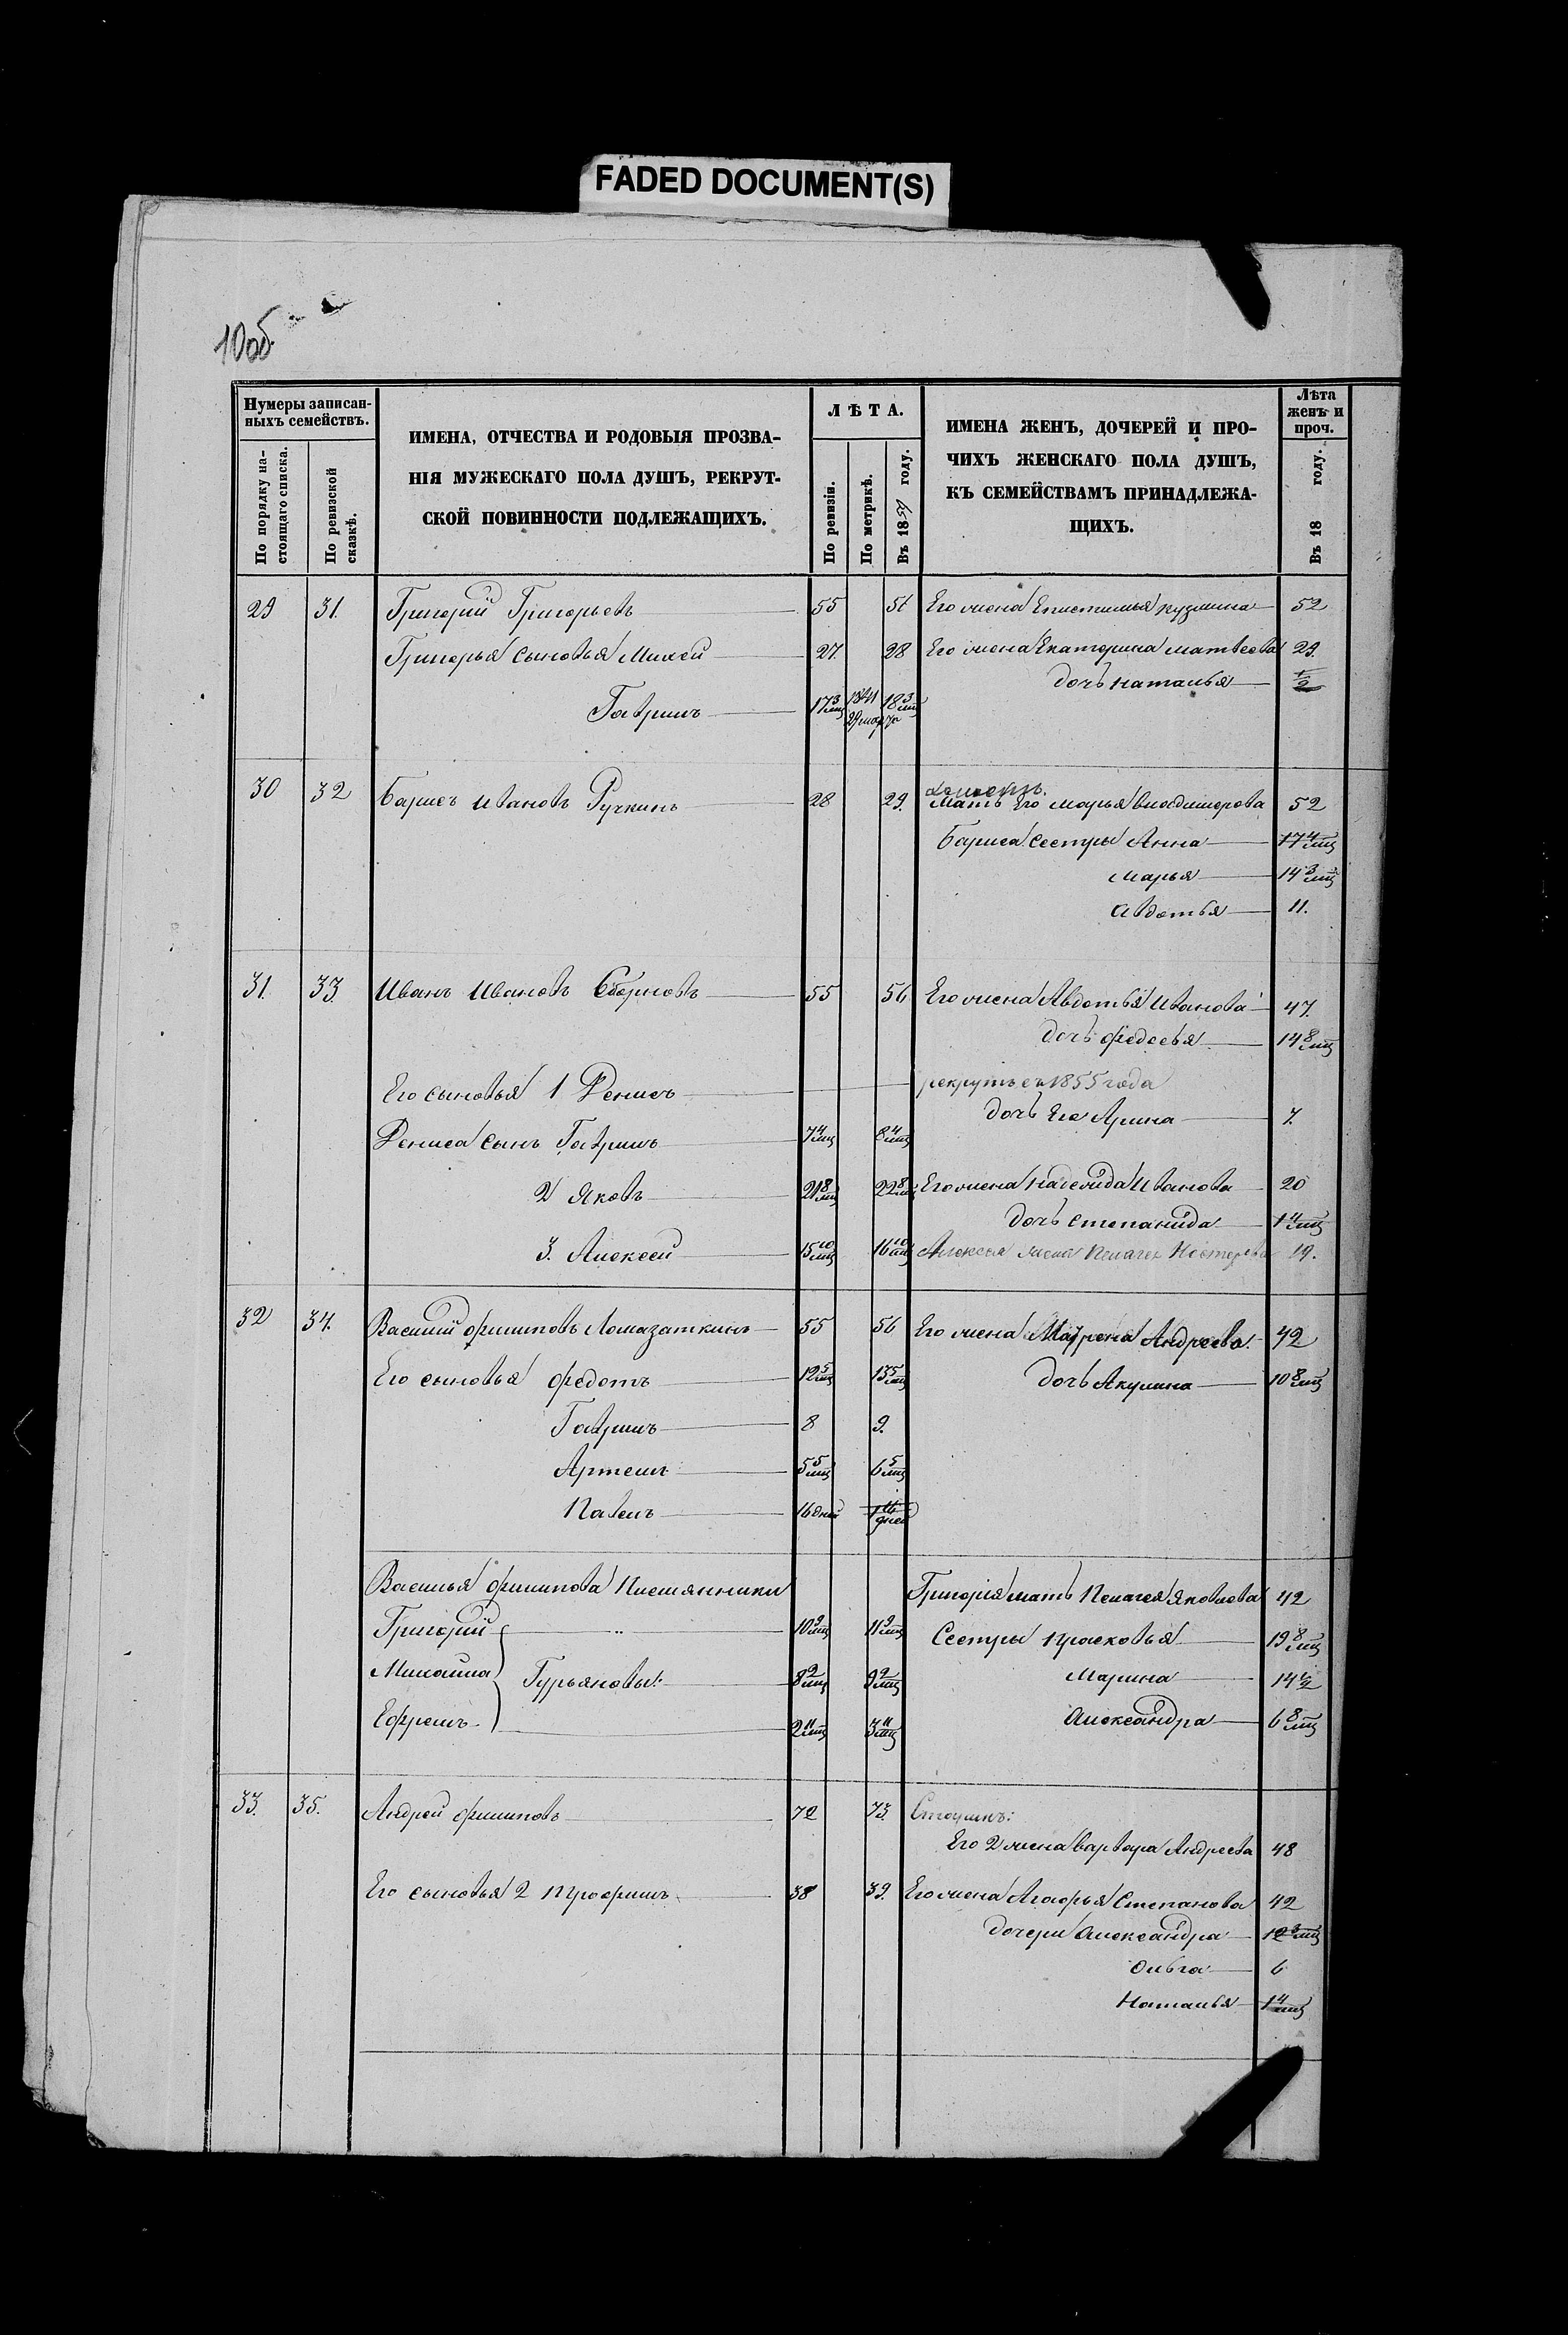 FADED DOCUMENT(S)
10об.
Нумеры записан-
ныхъ семействъ.
По порядку на-
стоящаго списка.
По ревизской
сказкѣ.
ИМЕНА, ОТЧЕСТВА И РОДОВЫЯ ПРОЗВА-
НІЯ МУЖЕСКАГО ПОЛА ДУШЪ, РЕКРУТ-
СКОЙ ПОВИННОСТИ ПОДЛЕЖАЩИХЪ.
ЛѢТА.
По ревизіи.
По метрикѣ.
Въ 1859 году.
ИМЕНА ЖЕНЪ, ДОЧЕРЕЙ И ПРО-
ЧИХЪ ЖЕНСКАГО ПОЛА ДУШЪ,
КЪ СЕМЕЙСТВАМЪ ПРИНАДЛЕЖА-
ЩИХЪ.
Лѣта
женъ и
проч.
Въ 18 году.
29 31. Григорій Григорьевъ 55 56 Его жена Епистимья кузмина 52
Григорья сыновья Михей 27. 28 Его жена Екатерина матвеева 29.
дочь наталья ½
Гаврилъ 17 3 мц 1841 29 марта 18 3 мц
30 32 Барисъ ивановъ Ручкинъ 28 29.
мать его марья владимерова 52
Бариса сестры Анна 17 4 мц
марья 14 3 мц
авдотья 11.
31. 33. Иванъ Ивановъ 55 56 Его жена Авдотья Иванова 47.
дочь федосья 14 8 мц
Его сыновья 1 Денисъ рекрутъ съ 1855 года
дочь Его Арина 7.
Дениса сынъ Гаврилъ 7 4 мц 8 4 мц
2 Яковъ 21 8 мц 22 8 мц Его жена надежда Иванова 20
дочь степанида 1 4 мц
3. Алексей 15 10 мц 16 10 мц Алексея жена Пелагея Нестерова 19.
32 34. Василий филиповъ Ломазаткинъ 55 56 Его жена Маўрена Андреева 42
Его сыновья федотъ 12 5 мц 13 5 мц дочь Акулина 10 8 мц
Гаврилъ 8 9.
Артемъ 5 5 мц 6 5 мц
Павелъ 16 дней 1 16 дней
Василья филипова Племянники Григорія мать Пелагея Яковлева 42
Григорій 10 9 мц 11 9 мц Сестры прасковья 19 8 мц
Михаила Гурьяновы: 8 9 мц 9 9 мц Марина 14 ½
Ефремъ 2 11 мц 3 11 мц Александра 6 8 мц
33. 35. Андрей филиповъ 72 73.
Его 2 жена варвара Андреева 48
Его сыновья 2 трофимъ 38 39. Его жена Агафья Степанова 42
дочери александра 12 3 мц
ольга 6
Наталья 1 4 мц